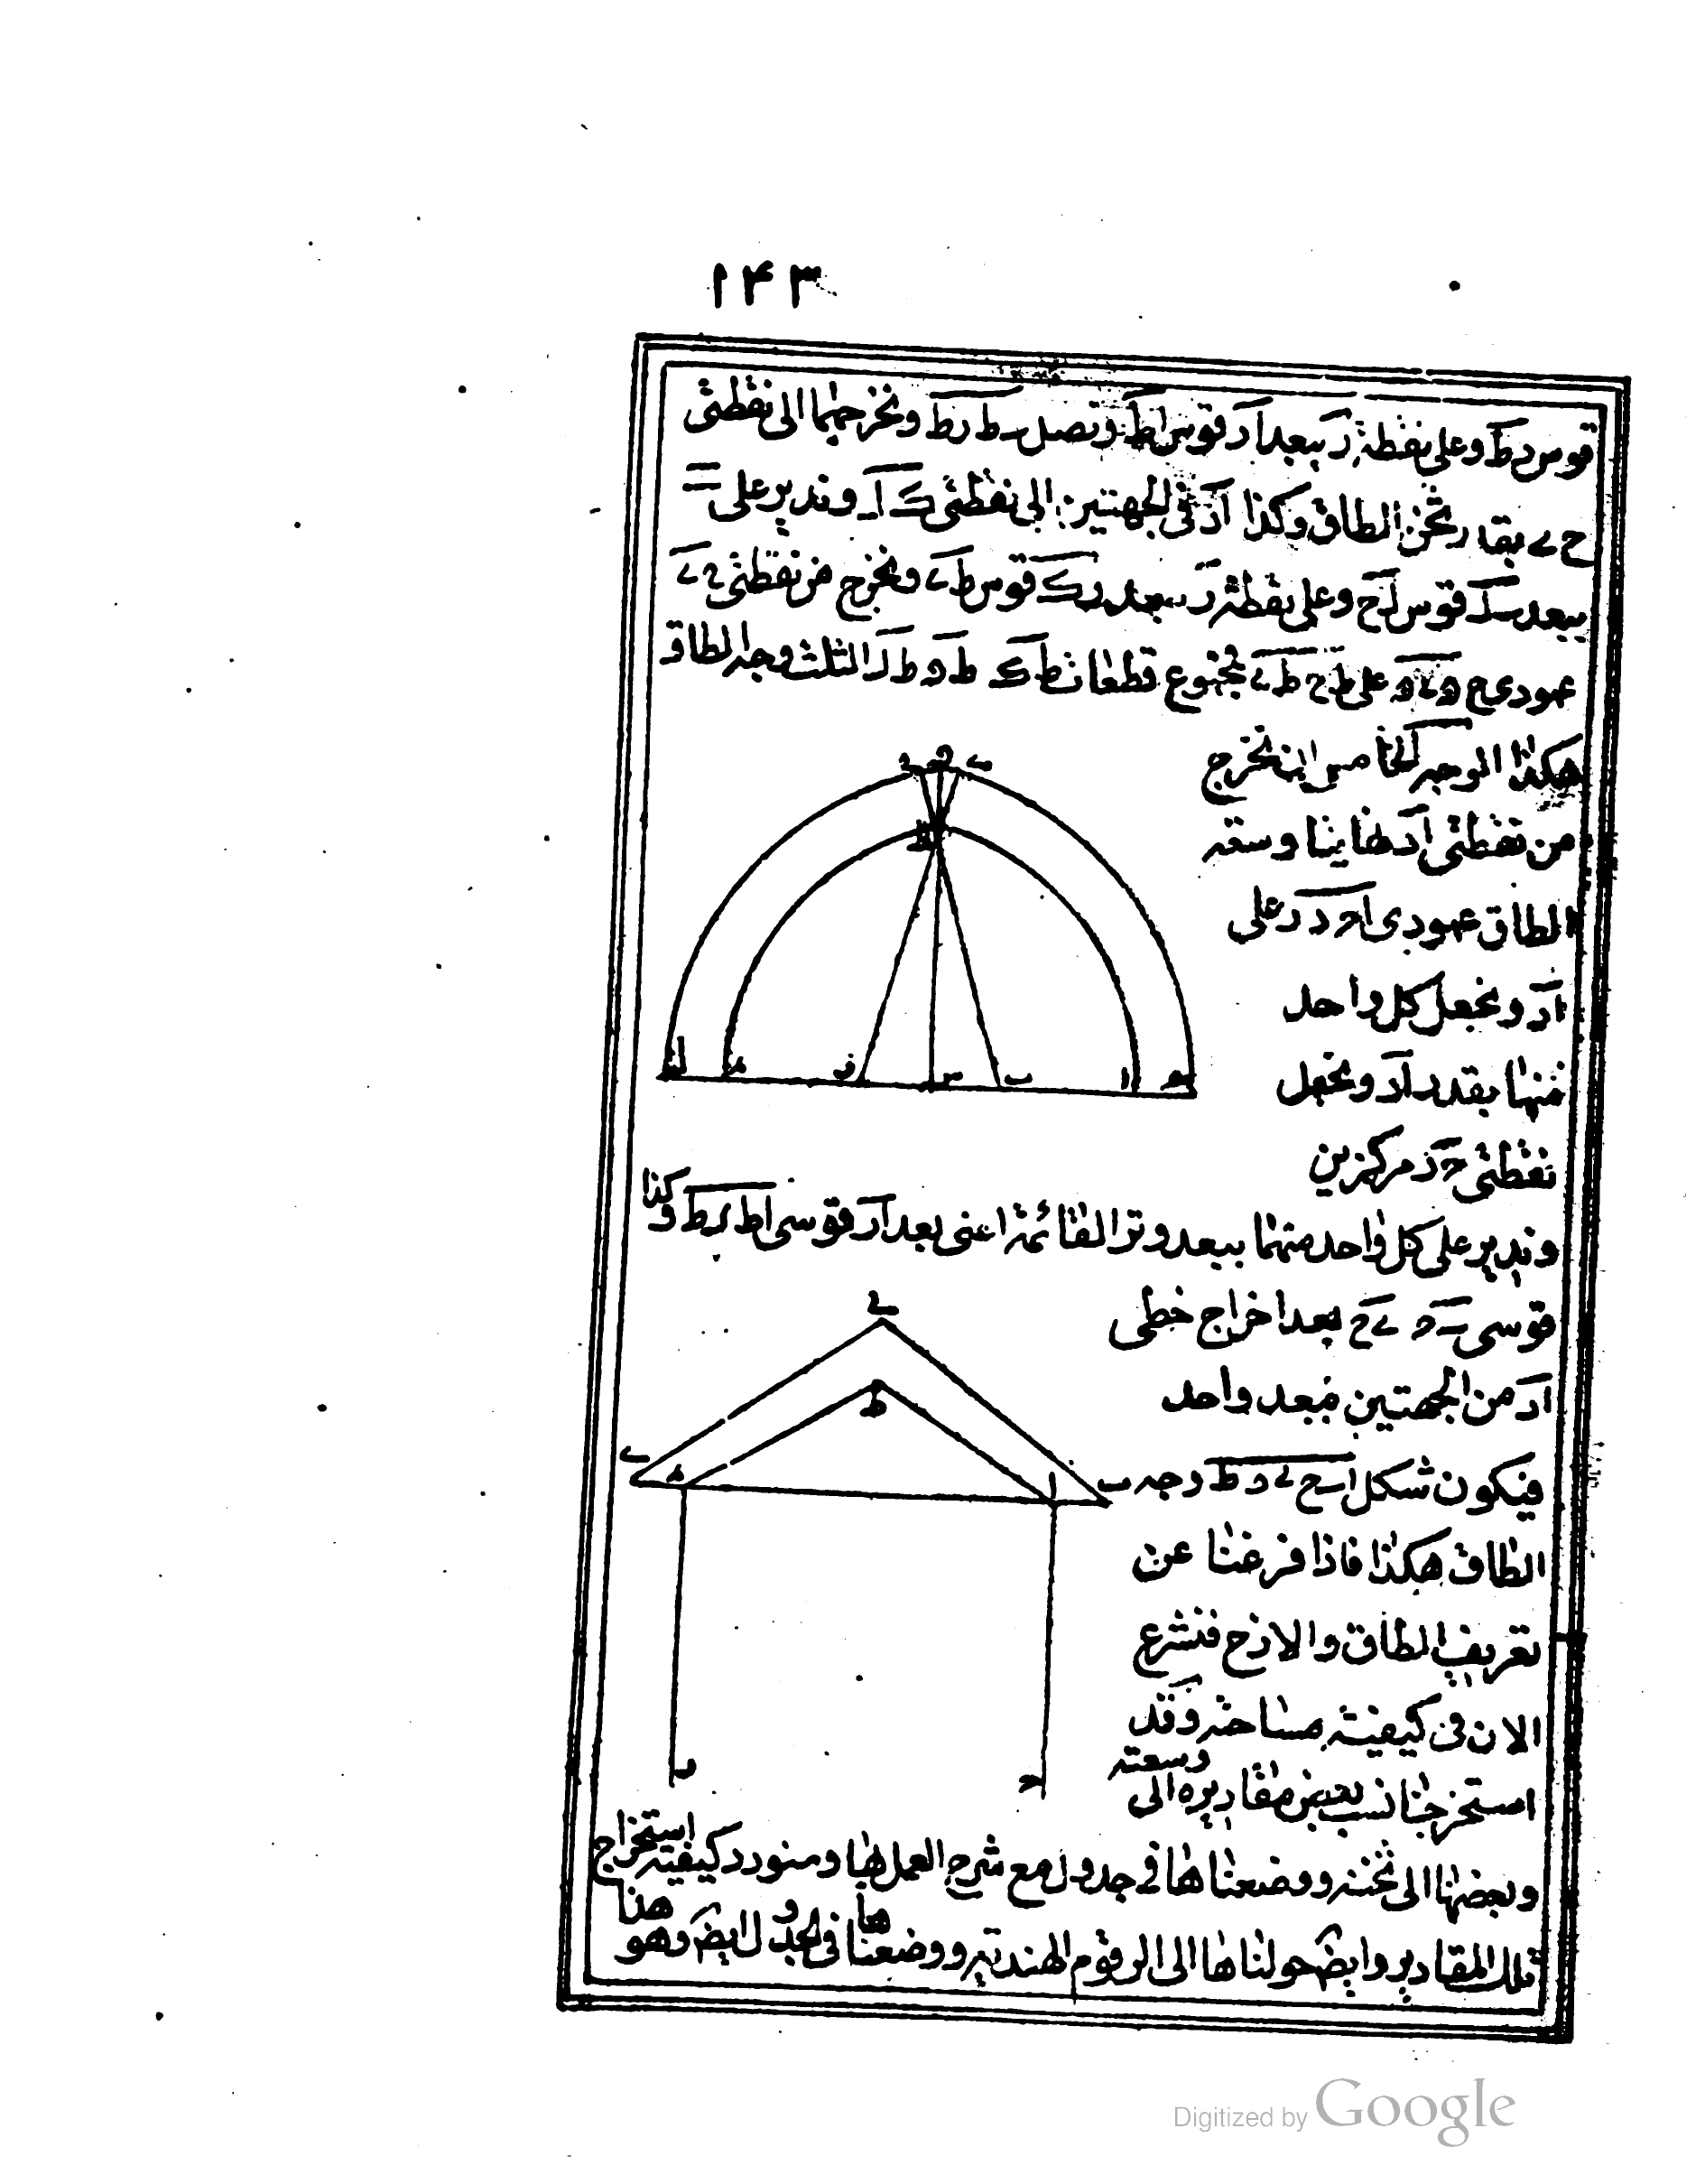 ١۴٣
قوس دط وعلى نقطة ر ببعد ار قوس اط ونصل ب ط رط ونخرجهما الى نقطتى
ح ے بقدر ثخن الطاق وكذا اد فى الجهتين الى نقطتى ك ل وندير على ب
ببعد ب ل قوس ل ح وعلى نقطة ر ببعد رك قوس ط ے ونخرج من نقطتى ح ے
عمودى ح ه ے ه على ط ح ط ے فمجموع قطعات اط ك ط ه ط د ل الثلث وجه الطاق
هكذا الوجه الخامس ان نخرج
من نقطتى اد نهايتا وسعة
الطاق عمودى اح د ر على
اد ونجعل كل واحد
منهما بقدر اد ونجعل
نقطتى ح ر مركزين
وندير على كل واحد منهما ببعد وتر القائمة اعنى بعد ار قوسى اط رط وكذا
قوسى ب ے ے ح بعد اخراج خطى
اد من الجهتين ببعد واحد
فيكون شكل اب ح ے د ط وجه
الطاق هكذا فاذا فرغنا عن
تعريف الطاق والازج فنشرع
الان فى كيفية مساحته وقد
استخرجنا نسب بعض مقاديره الى وسعته
وبعضها الى ثخنه ووضعناها فى جدول مع شرح العمل بها وسنورد كيفية استخراج
تلك المقادير وايضً حولناها الى الرقوم الهندية ووضعناها فى الجدول ايضً وهو هذا
ح ه ے
ط
ل د ر س ب ا ك
ے
ط
ے د ا ب
ر ح
Digitized by Google